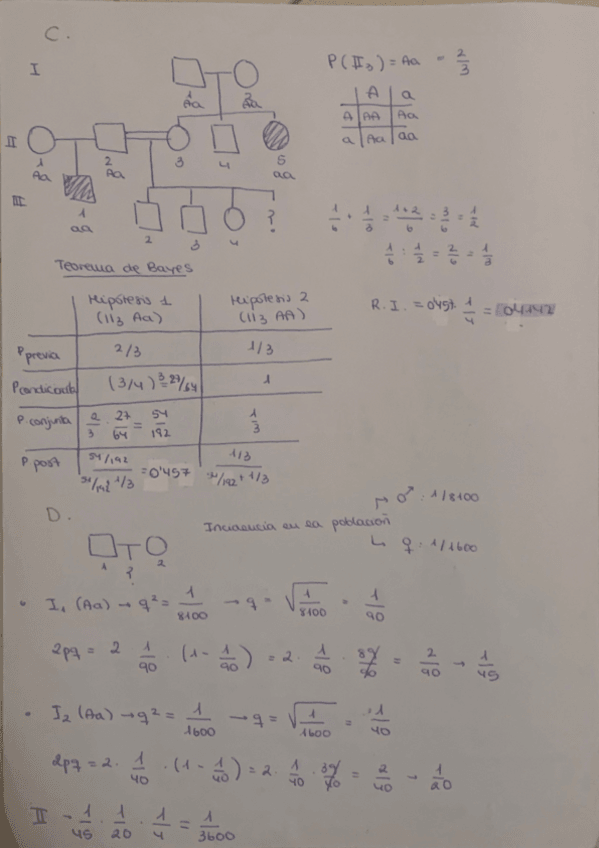 C.
I
1 Aa 2 Aa
P(II3) = Aa = 2/3
A a
A AA Aa
a Aa aa
II
1 Aa 2 Aa 3 4 5 aa
III
1 aa 2 3 4 ?
1/6 + 1/3 = 1+2/6 = 3/6 = 1/2
1/6 : 1/2 = 2/6 = 1/3
Teorema de Bayes
Hipótesis 1 (II3 Aa) Hipótesis 2 (II3 AA)
R.I. = 0'457 · 1/4 = 0'1142
P previa 2/3 1/3
P condicionada (3/4)³ = 27/64 1
P conjunta 2/3 · 27/64 = 54/192 1/3
P post 54/192 / 54/192 + 1/3 = 0'457 1/3 / 54/192 + 1/3
D.
1 ? 2
Incidencia en la población
→ ♂ : 1/8100
↳ ♀ : 1/1600
• I1 (Aa) → q² = 1/8100 → q = √1/8100 = 1/90
2pq = 2 1/90 · (1 - 1/90) = 2 · 1/90 · 89/90 = 2/90 → 1/45
• I2 (Aa) → q² = 1/1600 → q = √1/1600 = 1/40
2pq = 2 · 1/40 · (1 - 1/40) = 2 · 1/40 · 39/40 = 2/40 → 1/20
II → 1/45 · 1/20 · 1/4 = 1/3600